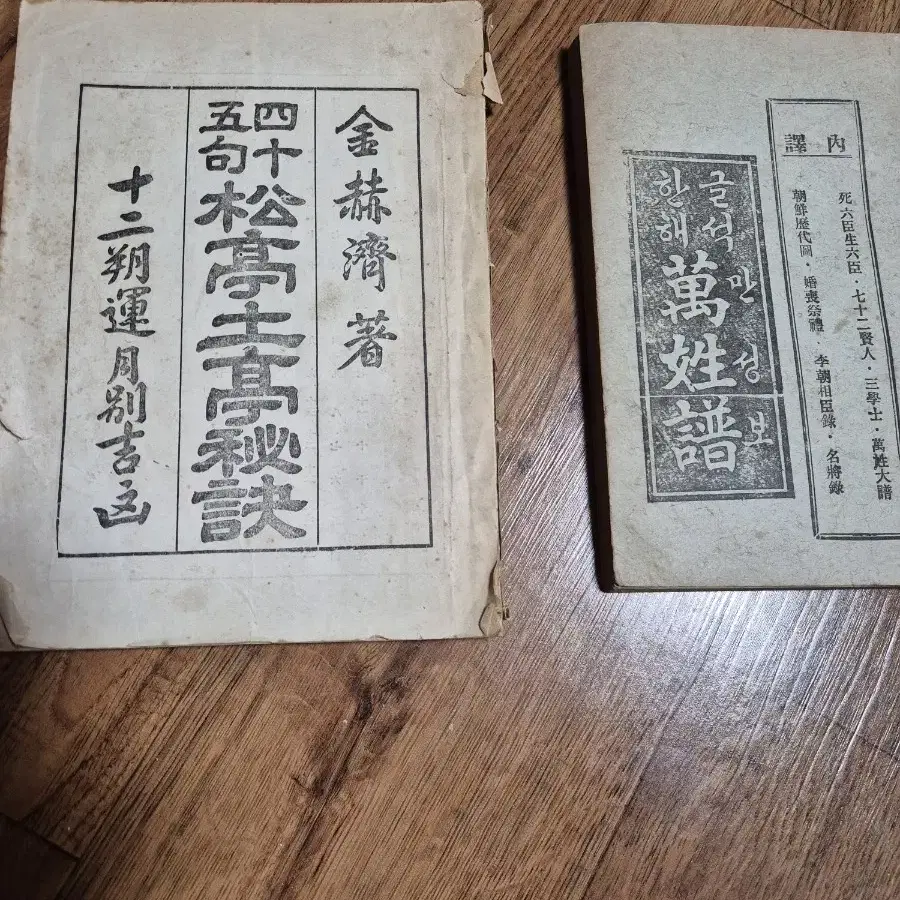 金赫濟著
四十五句
松亭土亭秘訣
十二朔運月別吉凶
內譯
死六臣生六臣・七十二賢人・三學士・萬姓大譜
朝鮮歷代圖・婚喪祭禮・李朝相臣錄・名將錄
한글
해석
萬姓譜
만성보